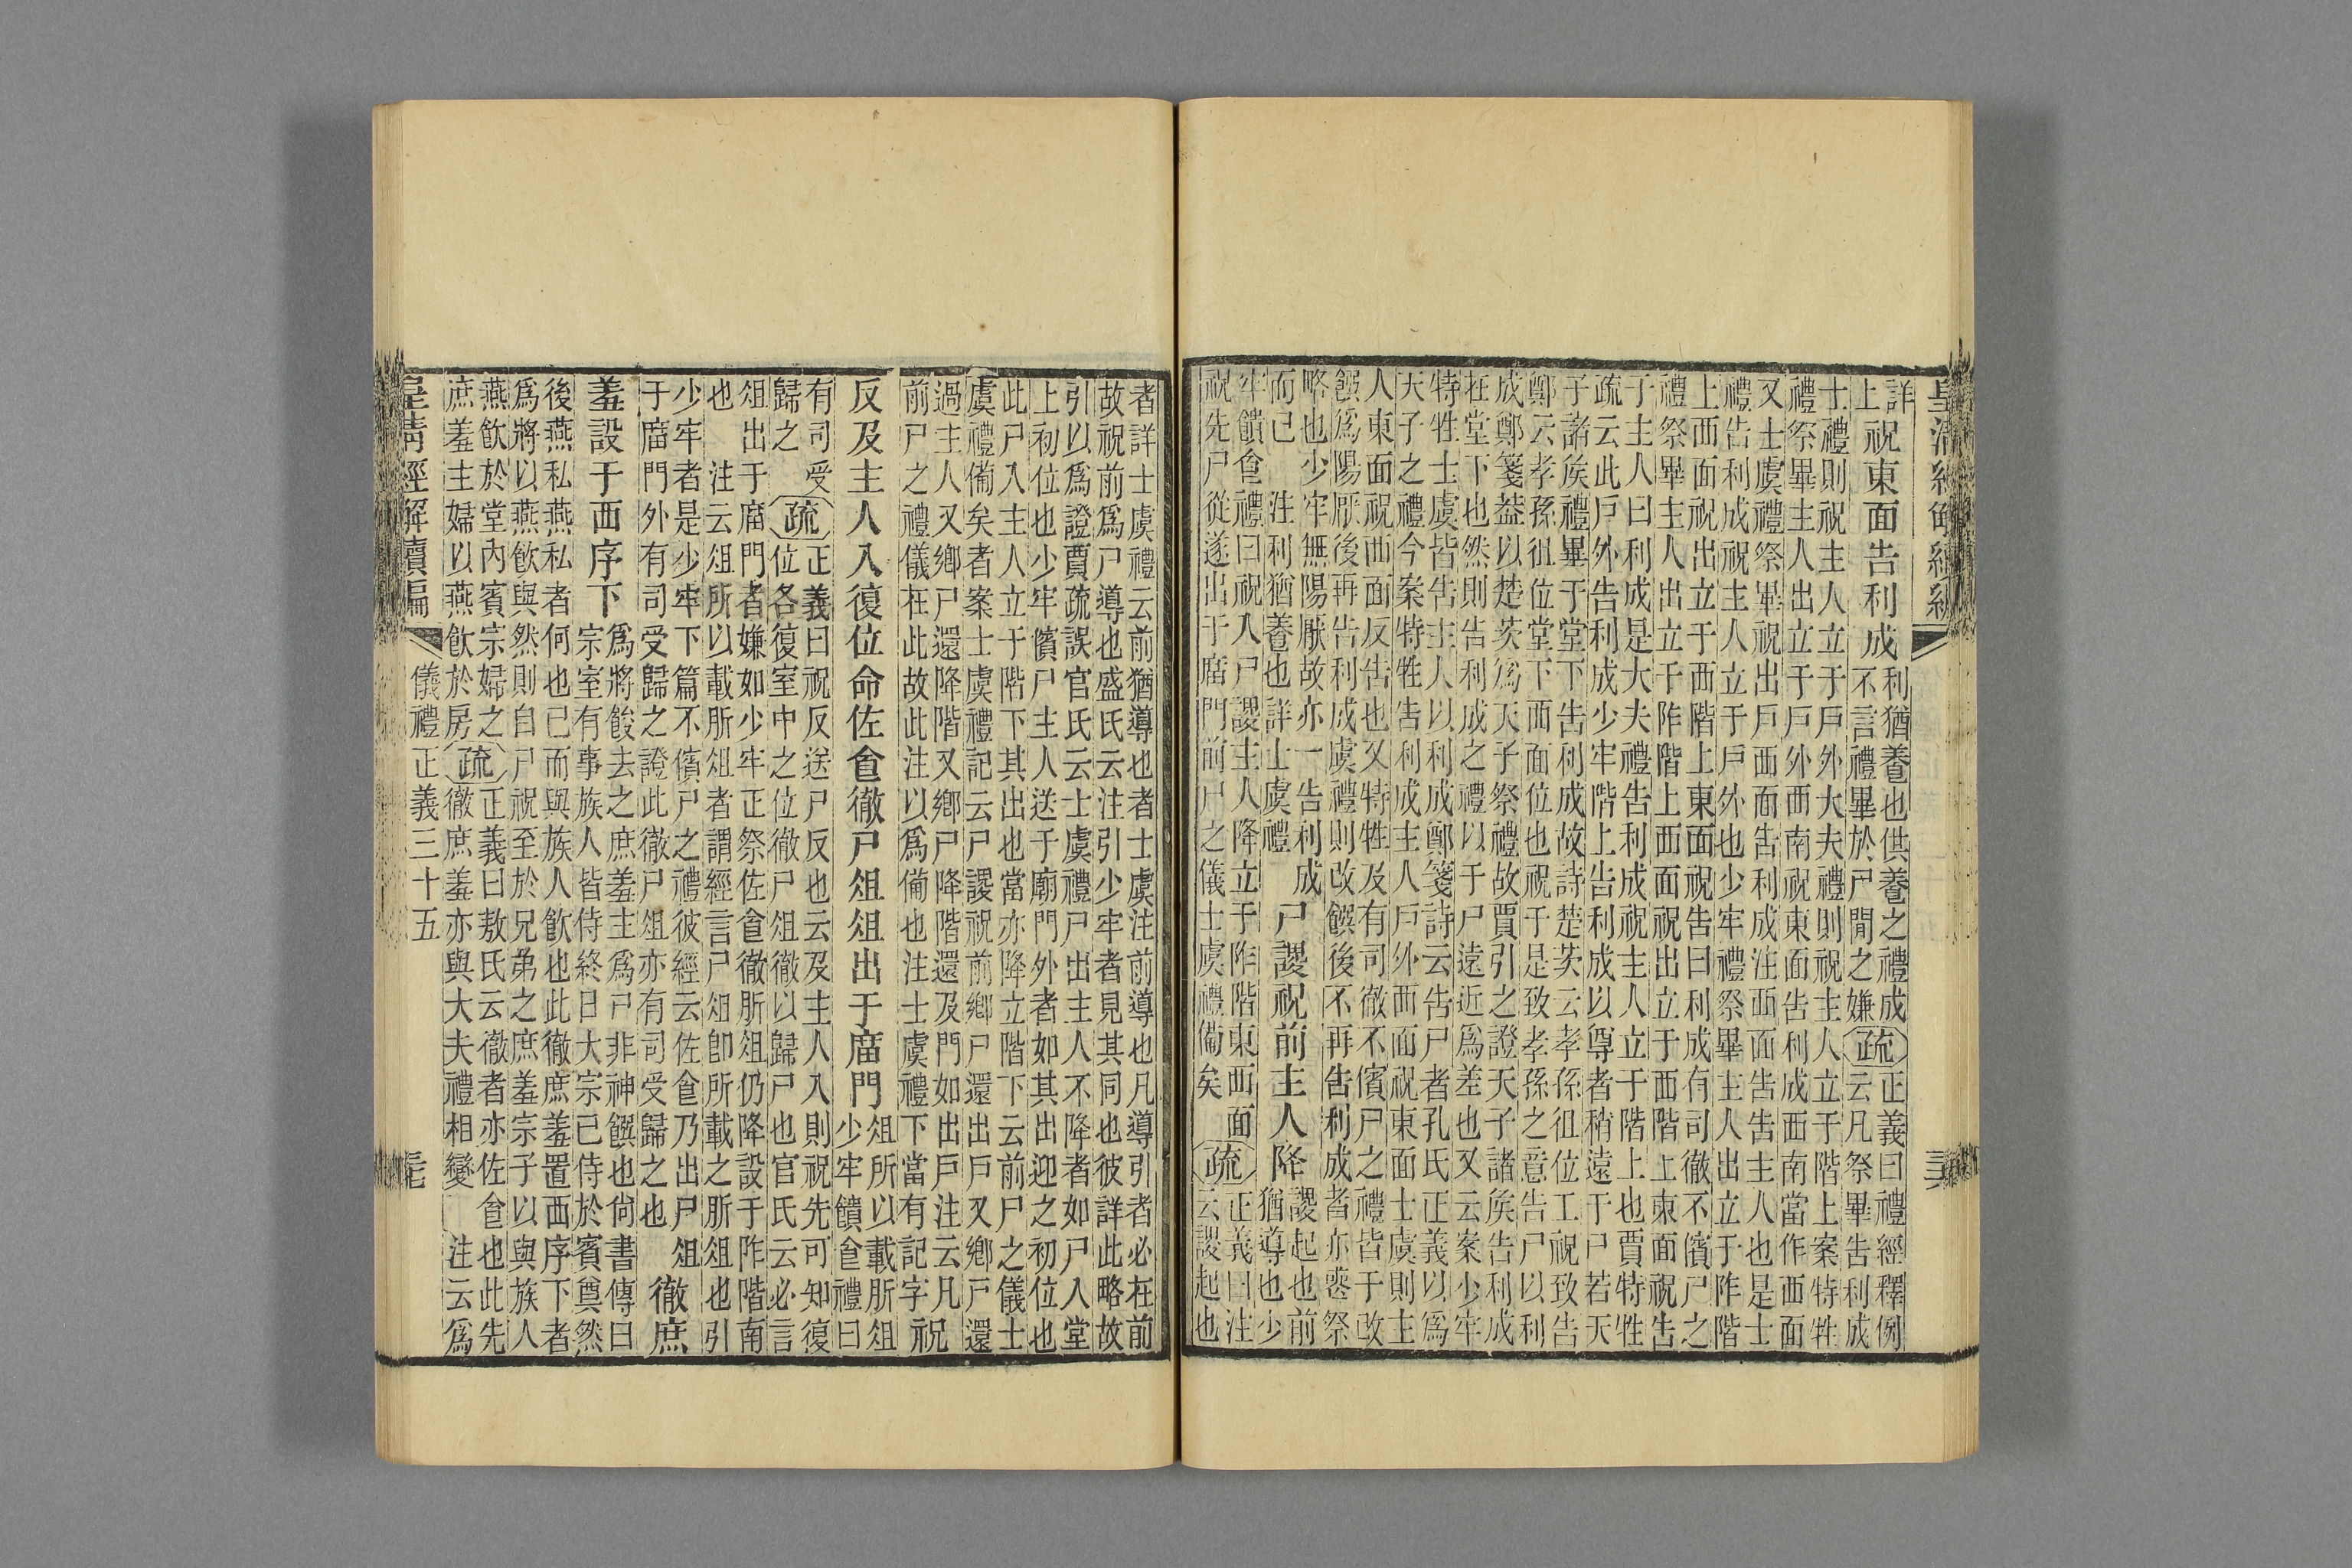 詳
上
祝東面告利成
利猶養也供養之禮成
不言禮畢於尸閒之嫌
疏
正義曰禮經釋例
云凡祭畢告利成
士禮則祝主人立于戶外大夫禮則祝主人立于階上案特牲
禮祭畢主人出立于戶外西南祝東面告利成西南當作西面
又士虞禮祭畢祝出戶西面告利成注西面告告主人也是士
禮告利成祝主人立于戶外也少牢禮祭畢主人出立于阼階
上西面祝出立于西階上東面祝告曰利成有司徹不儐尸之
禮祭畢主人出立于阼階上西面祝出立于西階上東面祝告
于主人曰利成是大夫禮告利成祝主人立于階上也賈特牲
疏云此戶外告利成少牢階上告利成以尊者稍遠于尸若天
子諸侯禮畢于堂下告利成故詩楚茨云孝孫徂位工祝致告
鄭云孝孫徂位堂下西面位也祝于是致孝孫之意告尸以利
成鄭箋蓋以楚茨爲天子祭禮故賈引之證天子諸侯告利成
在堂下也然則告利成之禮以于尸遠近爲差也又云案少牢
特牲士虞皆告主人以利成鄭箋詩云告尸者孔氏正義以爲
天子之禮今案特牲告利成主人戶外西面祝東面士虞則主
人東面祝西面反告也又特牲及有司徹不儐尸之禮皆于改
饌爲陽厭後再告利成虞禮則改饌後不再告利成者亦喪祭
略也少牢無陽厭故亦一告利成
而已 注利猶養也詳士虞禮
尸謖祝前主人降
謖起也前
猶導也少
牢饋食禮曰祝入尸謖主人降立于阼階東西面
祝先尸從遂出于廟門前尸之儀士虞禮備矣
疏
正義曰注
云謖起也
者詳士虞禮云前猶導也者士虞注前導也凡導引者必在前
故祝前爲尸導也盛氏云注引少牢者見其同也彼詳此略故
引以爲證賈疏誤官氏云士虞禮尸出主人不降者如尸入堂
上初位也少牢儐尸主人送于廟門外者如其出迎之初位也
此尸入主人立于階下其出也當亦降立階下云前尸之儀士
虞禮備矣者案士虞禮記云尸謖祝前鄉尸還出戶又鄉尸還
過主人又鄉尸還降階又鄉尸降階還及門如出戶注云凡
前尸之禮儀在此故此注以爲備也注士虞禮下當有記字
祝
反及主人入復位命佐食徹尸俎俎出于廟門
俎所以載肵俎
少牢饋食禮曰
有司受
歸之
疏
正義曰祝反送尸反也云及主人入則祝先可知復
位各復室中之位徹尸俎徹以歸尸也官氏云必言
俎出于廟門者嫌如少牢正祭佐食徹肵俎仍降設于阼階南
也 注云俎所以載肵俎者謂經言尸俎卽所載之肵俎也引
少牢者是少牢下篇不儐尸之禮彼經云佐食乃出尸俎
于廟門外有司受歸之證此徹尸俎亦有司受歸之也
徹庶
羞設于西序下
爲將餕去之庶羞主爲尸非神饌也尚書傳曰
宗室有事族人皆侍終日大宗已侍於賓奠然
後燕私燕私者何也已而與族人飲也此徹庶羞置西序下者
爲將以燕飲與然則自尸祝至於兄弟之庶羞宗子以與族人
燕飲於堂內賓宗婦之
庶羞主婦以燕飲於房
疏
正義曰敖氏云徹者亦佐食也此先
徹庶羞亦與大夫禮相變 注云爲
皇清經解續編
儀禮正義三十五